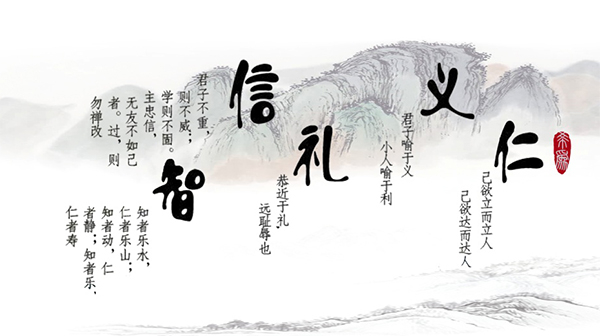 仁
己欲立而立人
己欲达而达人
义
君子喻于义
小人喻于利
礼
恭近于礼,
远耻辱也
信
君子不重,
则不威;
学则不固。
主忠信,
无友不如己
者。过,则
勿禅改
智
知者乐水,
仁者乐山;
知者动,仁
者静;知者乐,
仁者寿